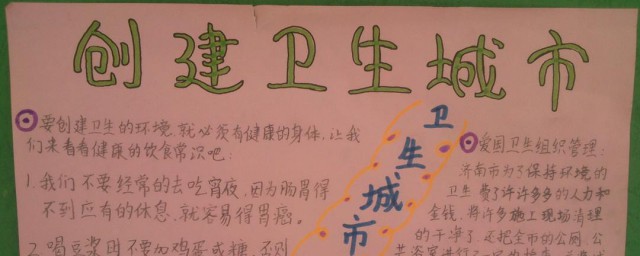 创建卫生城市
要创建卫生的环境,就必须有健康的身体,让我
们来看看健康的饮食常识吧:
1.我们不要经常的去吃宵夜,因为肠胃得
不到应有的休息,就容易得胃癌。
2.喝豆浆时不要加鸡蛋或糖,否则
卫生城市
爱国卫生组织管理:
济南市为了保持环境的
卫生,费了许许多多的人力和
金钱,将许多施工现场清理
的干净了,还把全市的公厕、公